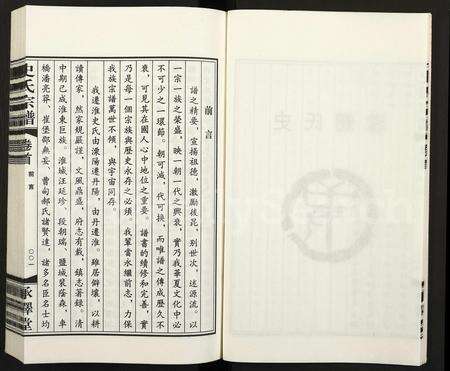 前言
譜之精要，宣揚祖德，激勵後昆，別世次，述源流。以
一宗一族之榮盛，映一朝一代之興衰，實乃我華夏文化中必
不可少之一環節。朝可滅，代可換，而唯譜之傳成歷久不
衰，可見其在國人心中地位之重要。譜書的續修和完善，實
乃是每一個宗族與歷史永存之必須。我輩當永繼前志，力保
我族宗譜萬世不傾，與宇宙同存。
我遷淮史氏由溧陽遷丹陽，由丹遷淮。雖居僻壤，以耕
讀傳家，然家規嚴謹，文風鼎盛，府志有載，鎮志著錄。清
中期已成淮東巨族。淮城汪廷珍、段朝瑞，鹽城裴蔭森，阜
橋潘亮彝，崔堡鄒無妄，曹甸郝氏諸賢達，諸多名臣名士均
史氏宗譜
卷首
前言
〇〇一
承澤堂
史氏